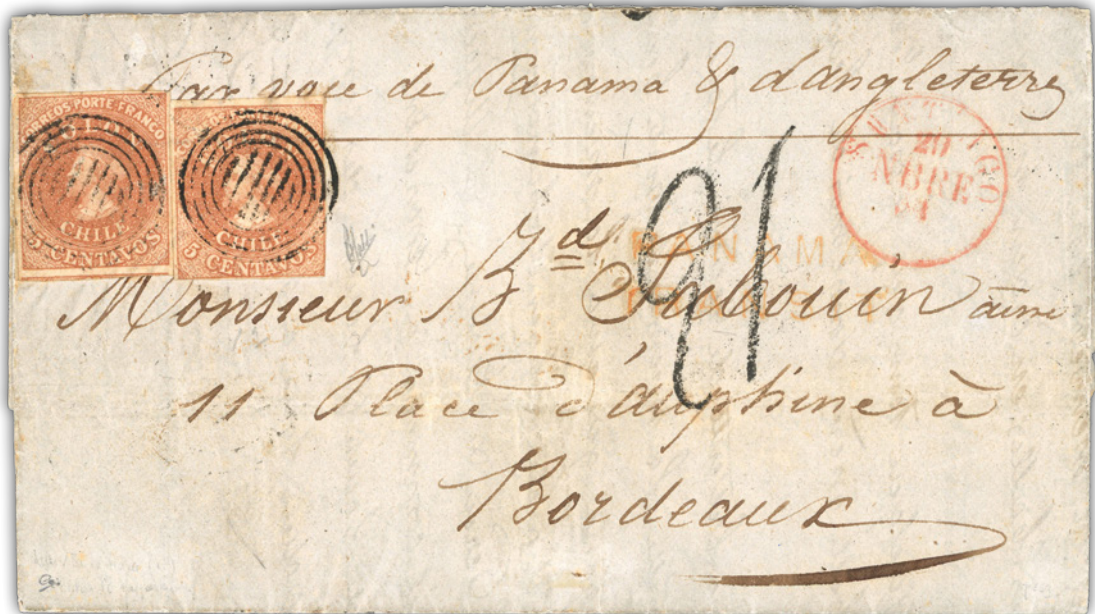 Par voie de Panama & d'angleterre
CORREOS PORTE FRANCO
COLON
CHILE
5 CENTAVOS
COLON
CHILE
5 CENTAVOS
SANTIAGO
20
NBRE
54
21
PANAMA
TRANSIT
Monsieur Bd. aîné
11 Place Dauphine à
Bordeaux